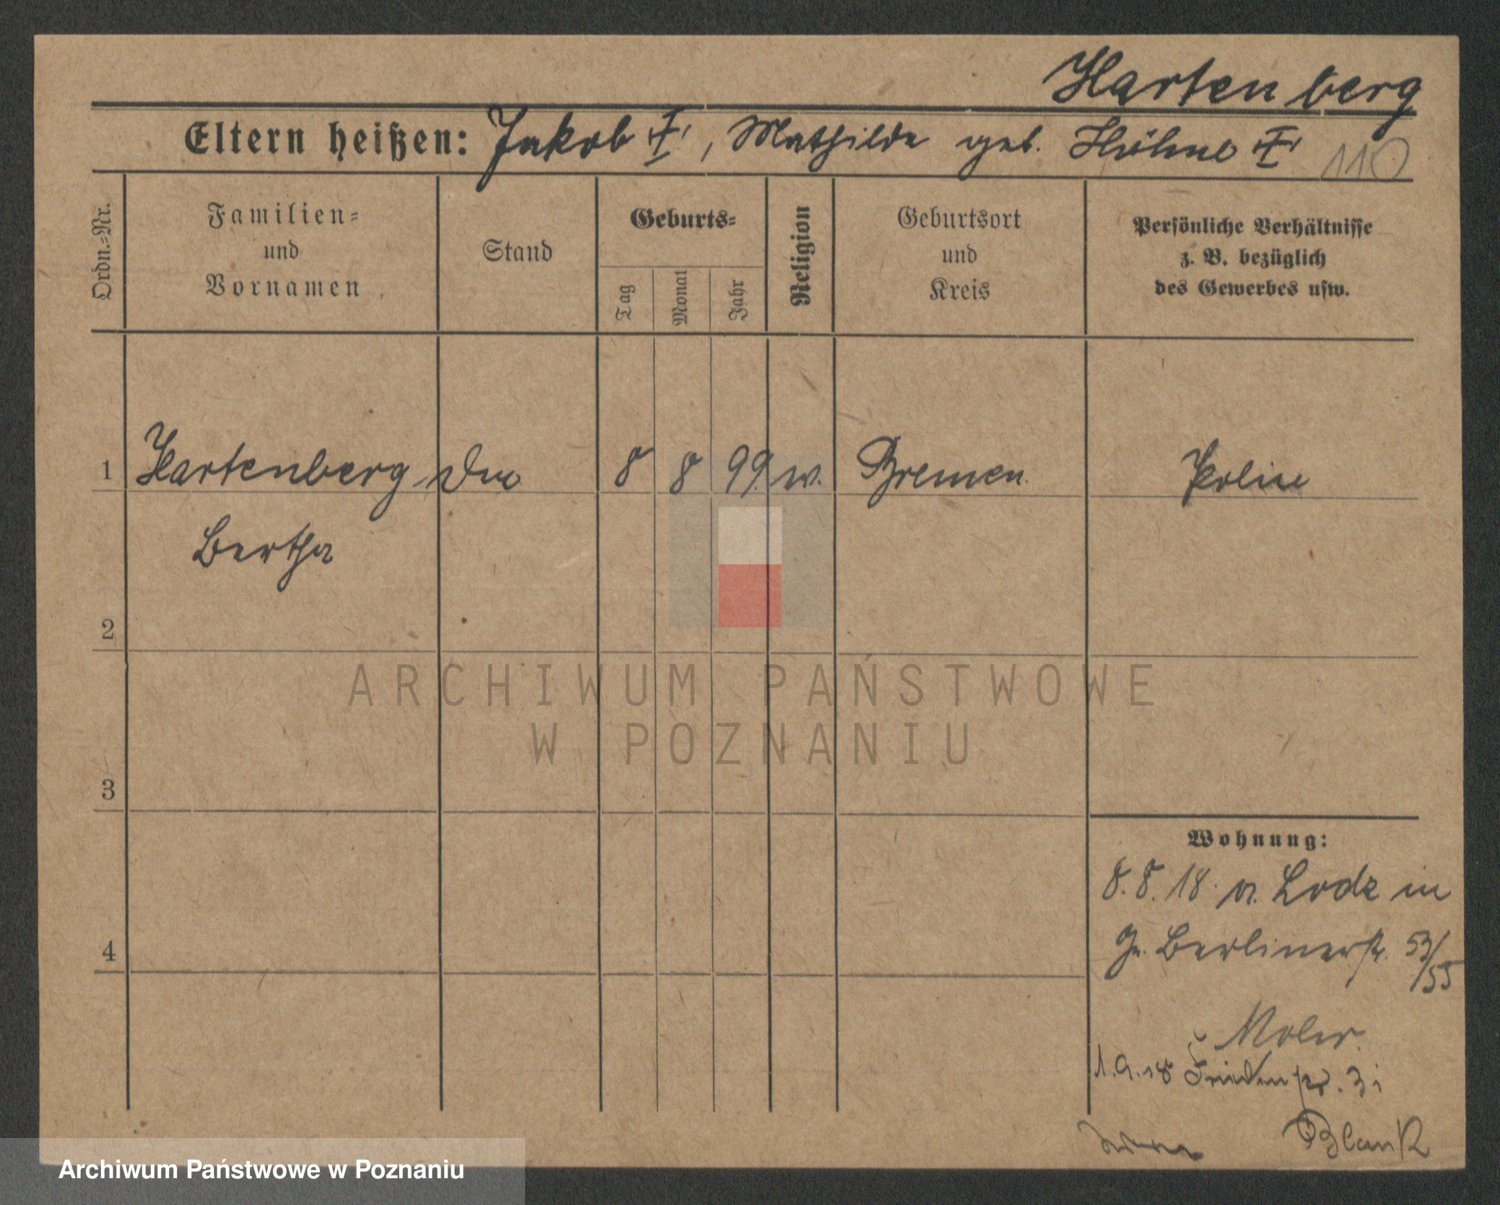 Hartenberg
Eltern heißen: Jakob †, Mathilde geb. Höhne † 110
Ordn.-Nr.
Familien-
und
Vornamen
Stand
Geburts-
Tag
Monat
Jahr
Religion
Geburtsort
und
Kreis
Persönliche Verhältnisse
z. B. bezüglich
des Gewerbes usw.
1 Hartenberg 8 8 99 Bremen
Bertha
2
ARCHIWUM PAŃSTWOWE
W POZNANIU
3
Wohnung:
8.8.18. Lodz in
Gr. Berlinerstr. 53/
55
4
1.9.18
Blank
Archiwum Państwowe w Poznaniu